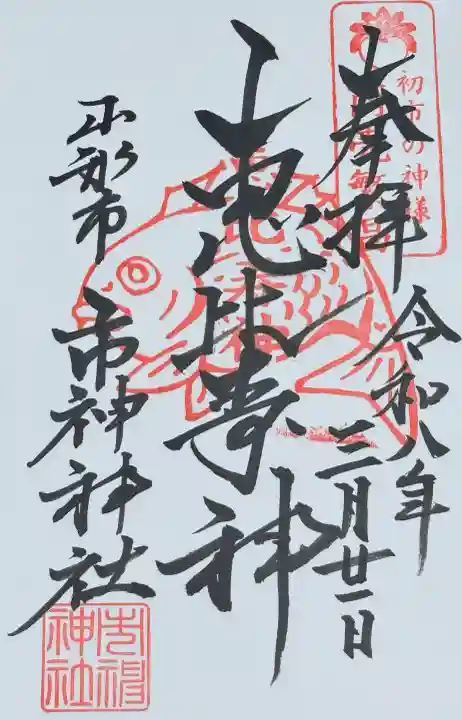 初市の神様
奉拝
令和八年
三月廿一日
恵比寿神
山形市 市神神社
市神神社